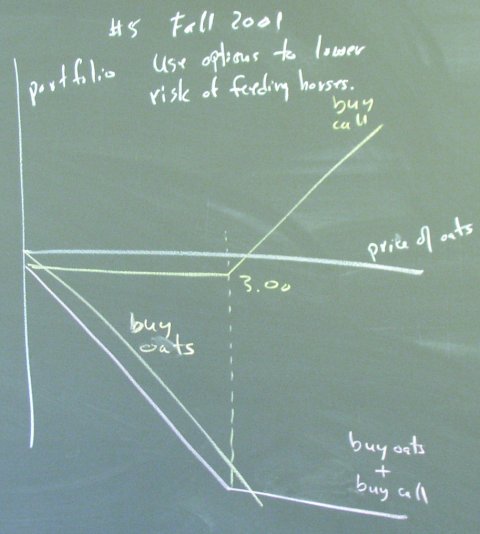 #5 Fall 2001
Use options to lower
risk of feeding horses.
portfolio
buy
call
price of oats
3.00
buy
oats
buy oats
+
buy call